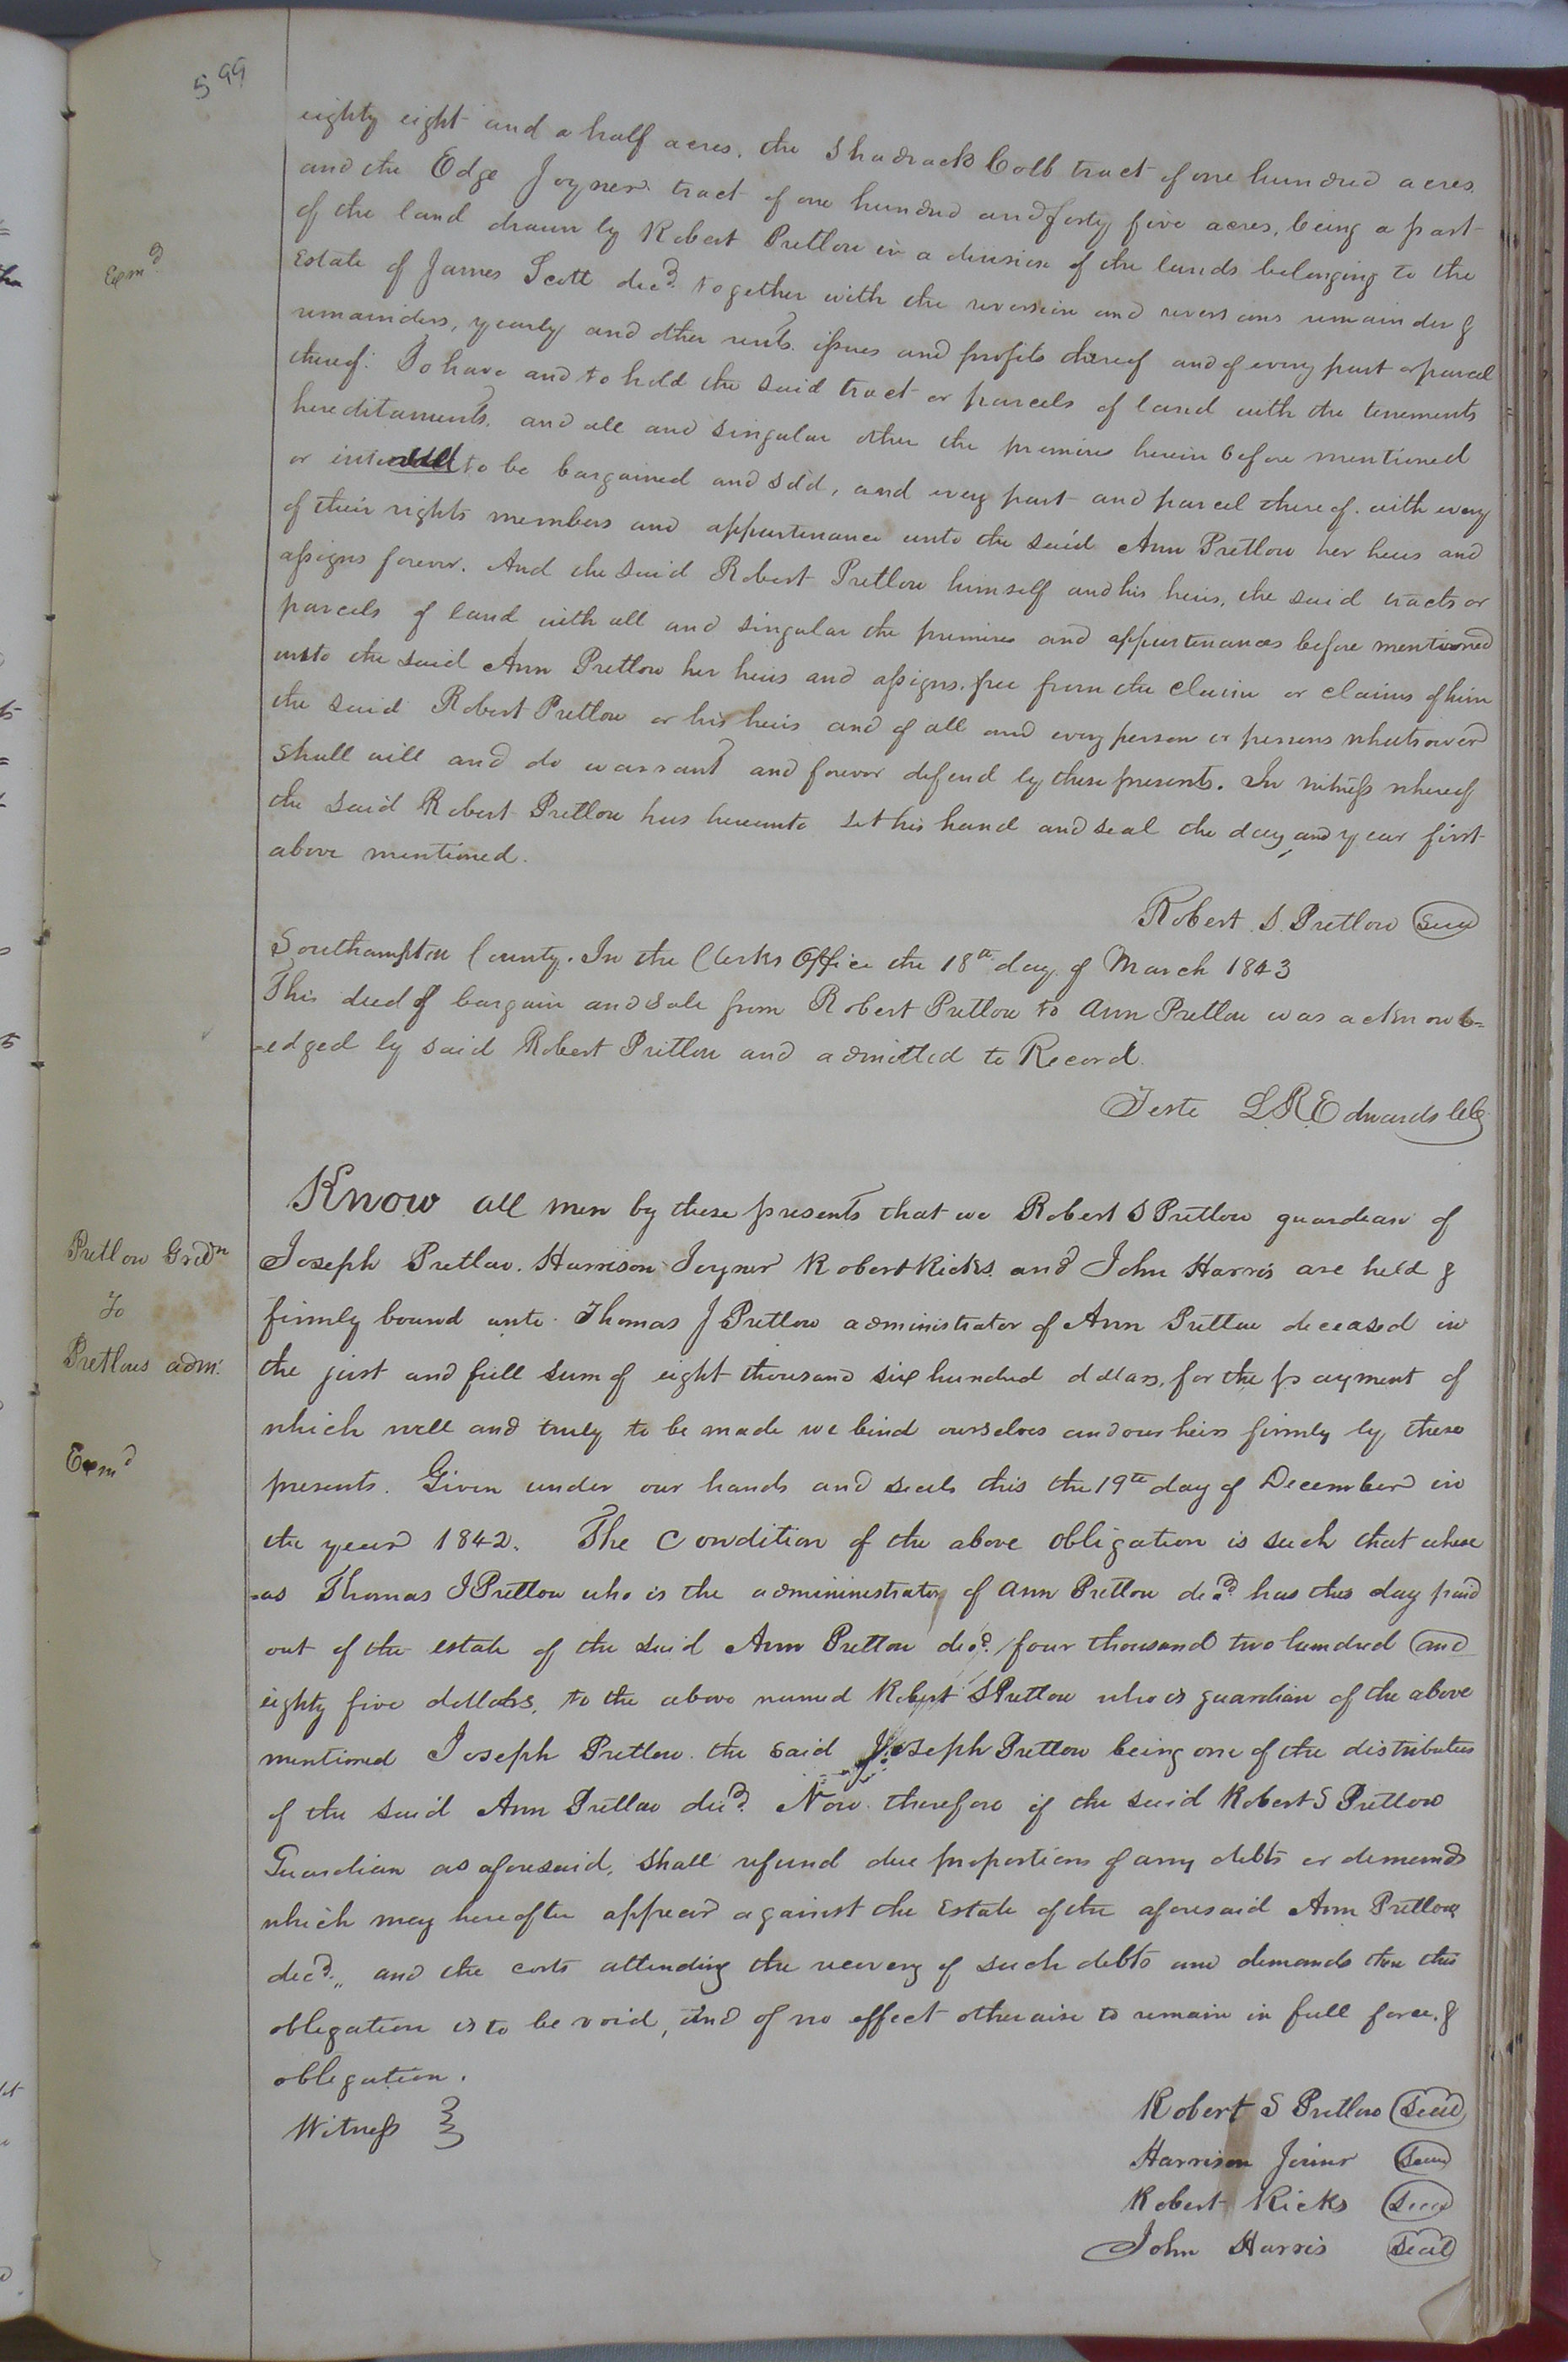 599
eighty eight and a half acres. the Shadrack Cobb tract of one hundred acres
and the Edge Joyner tract of one hundred and forty five acres, being a part
of the land drawn by Robert Pretlow in a division of the lands belonging to the
Exmd
Estate of James Scott decd. together with the reversion and reversions remainder &
remainders, yearly and other rents. issues and profits thereof and of every part or parcel
thereof: To have and to hold the said tract or parcels of land with the tenements
hereditaments, and all and singular other the premises herein before mentioned
or to be bargained and sold, and every part and parcel thereof. with every
of their rights members and appurtenance unto the said Ann Pretlow her heirs and
assigns forever. And the said Robert Pretlow himself and his heirs, the said tracts or
parcels of land with all and singular the premises and appurtenances before mentioned
unto the said Ann Pretlow her heirs and assigns. free from the claim or claims of him
the said Robert Pretlow or his heirs and of all and every person or persons whatsoever
shall will and do warrant and forever defend by these presents. In witness whereof
the said Robert Pretlow has hereunto set his hand and seal the day and year first
above mentioned.
Robert S. Pretlow Seal
Southampton County. In the Clerks Office the 18th day of March 1843
This deed of bargain and sale from Robert Pretlow to Ann Pretlow was acknowl=
=edged by said Robert Pretlow and admitted to Record.
Teste L.R. Edwards
Know all men by these presents that we Robert S Pretlow guardian of
Pretlow Grdn
To
Pretlows adm.
Joseph Pretlow. Harrison Joyner Robert Ricks. and John Harris are held &
firmly bound unto Thomas J Pretlow administrator of Ann Pretlow deceased in
the just and full sum of eight thousand six hundred dollars, for the payment of
which well and truly to be made we bind ourselves and our heirs firmly by these
Exmd
presents. Given under our hands and seals this the 19th day of December in
the year 1842. The Condition of the above obligation is such that where
-as Thomas J Pretlow who is the admininistrator of Ann Pretlow decd. has this day paid
out of the estate of the said Ann Pretlow decd. four thousand two hundred and
eighty five dollars, to the above named Robert S Pretlow who is guardian of the above
mentioned Joseph Pretlow. the said Joseph Pretlow being one of the distributees
of the said Ann Pretlow decd. Now therefore if the said Robert S Pretlow
Guardian as aforesaid, shall refund due proportions of any debts or demands
which may hereafter appear against the Estate of the aforesaid Ann Pretlow
decd.,, and the costs attending the recovery of such debts and demands then this
obligation is to be void, and of no effect otherwise to remain in full force. &
obligation.
Witness
Robert S Pretlow Seal
Harrison Joiner Seal
Robert Ricks Seal
John Harris Seal